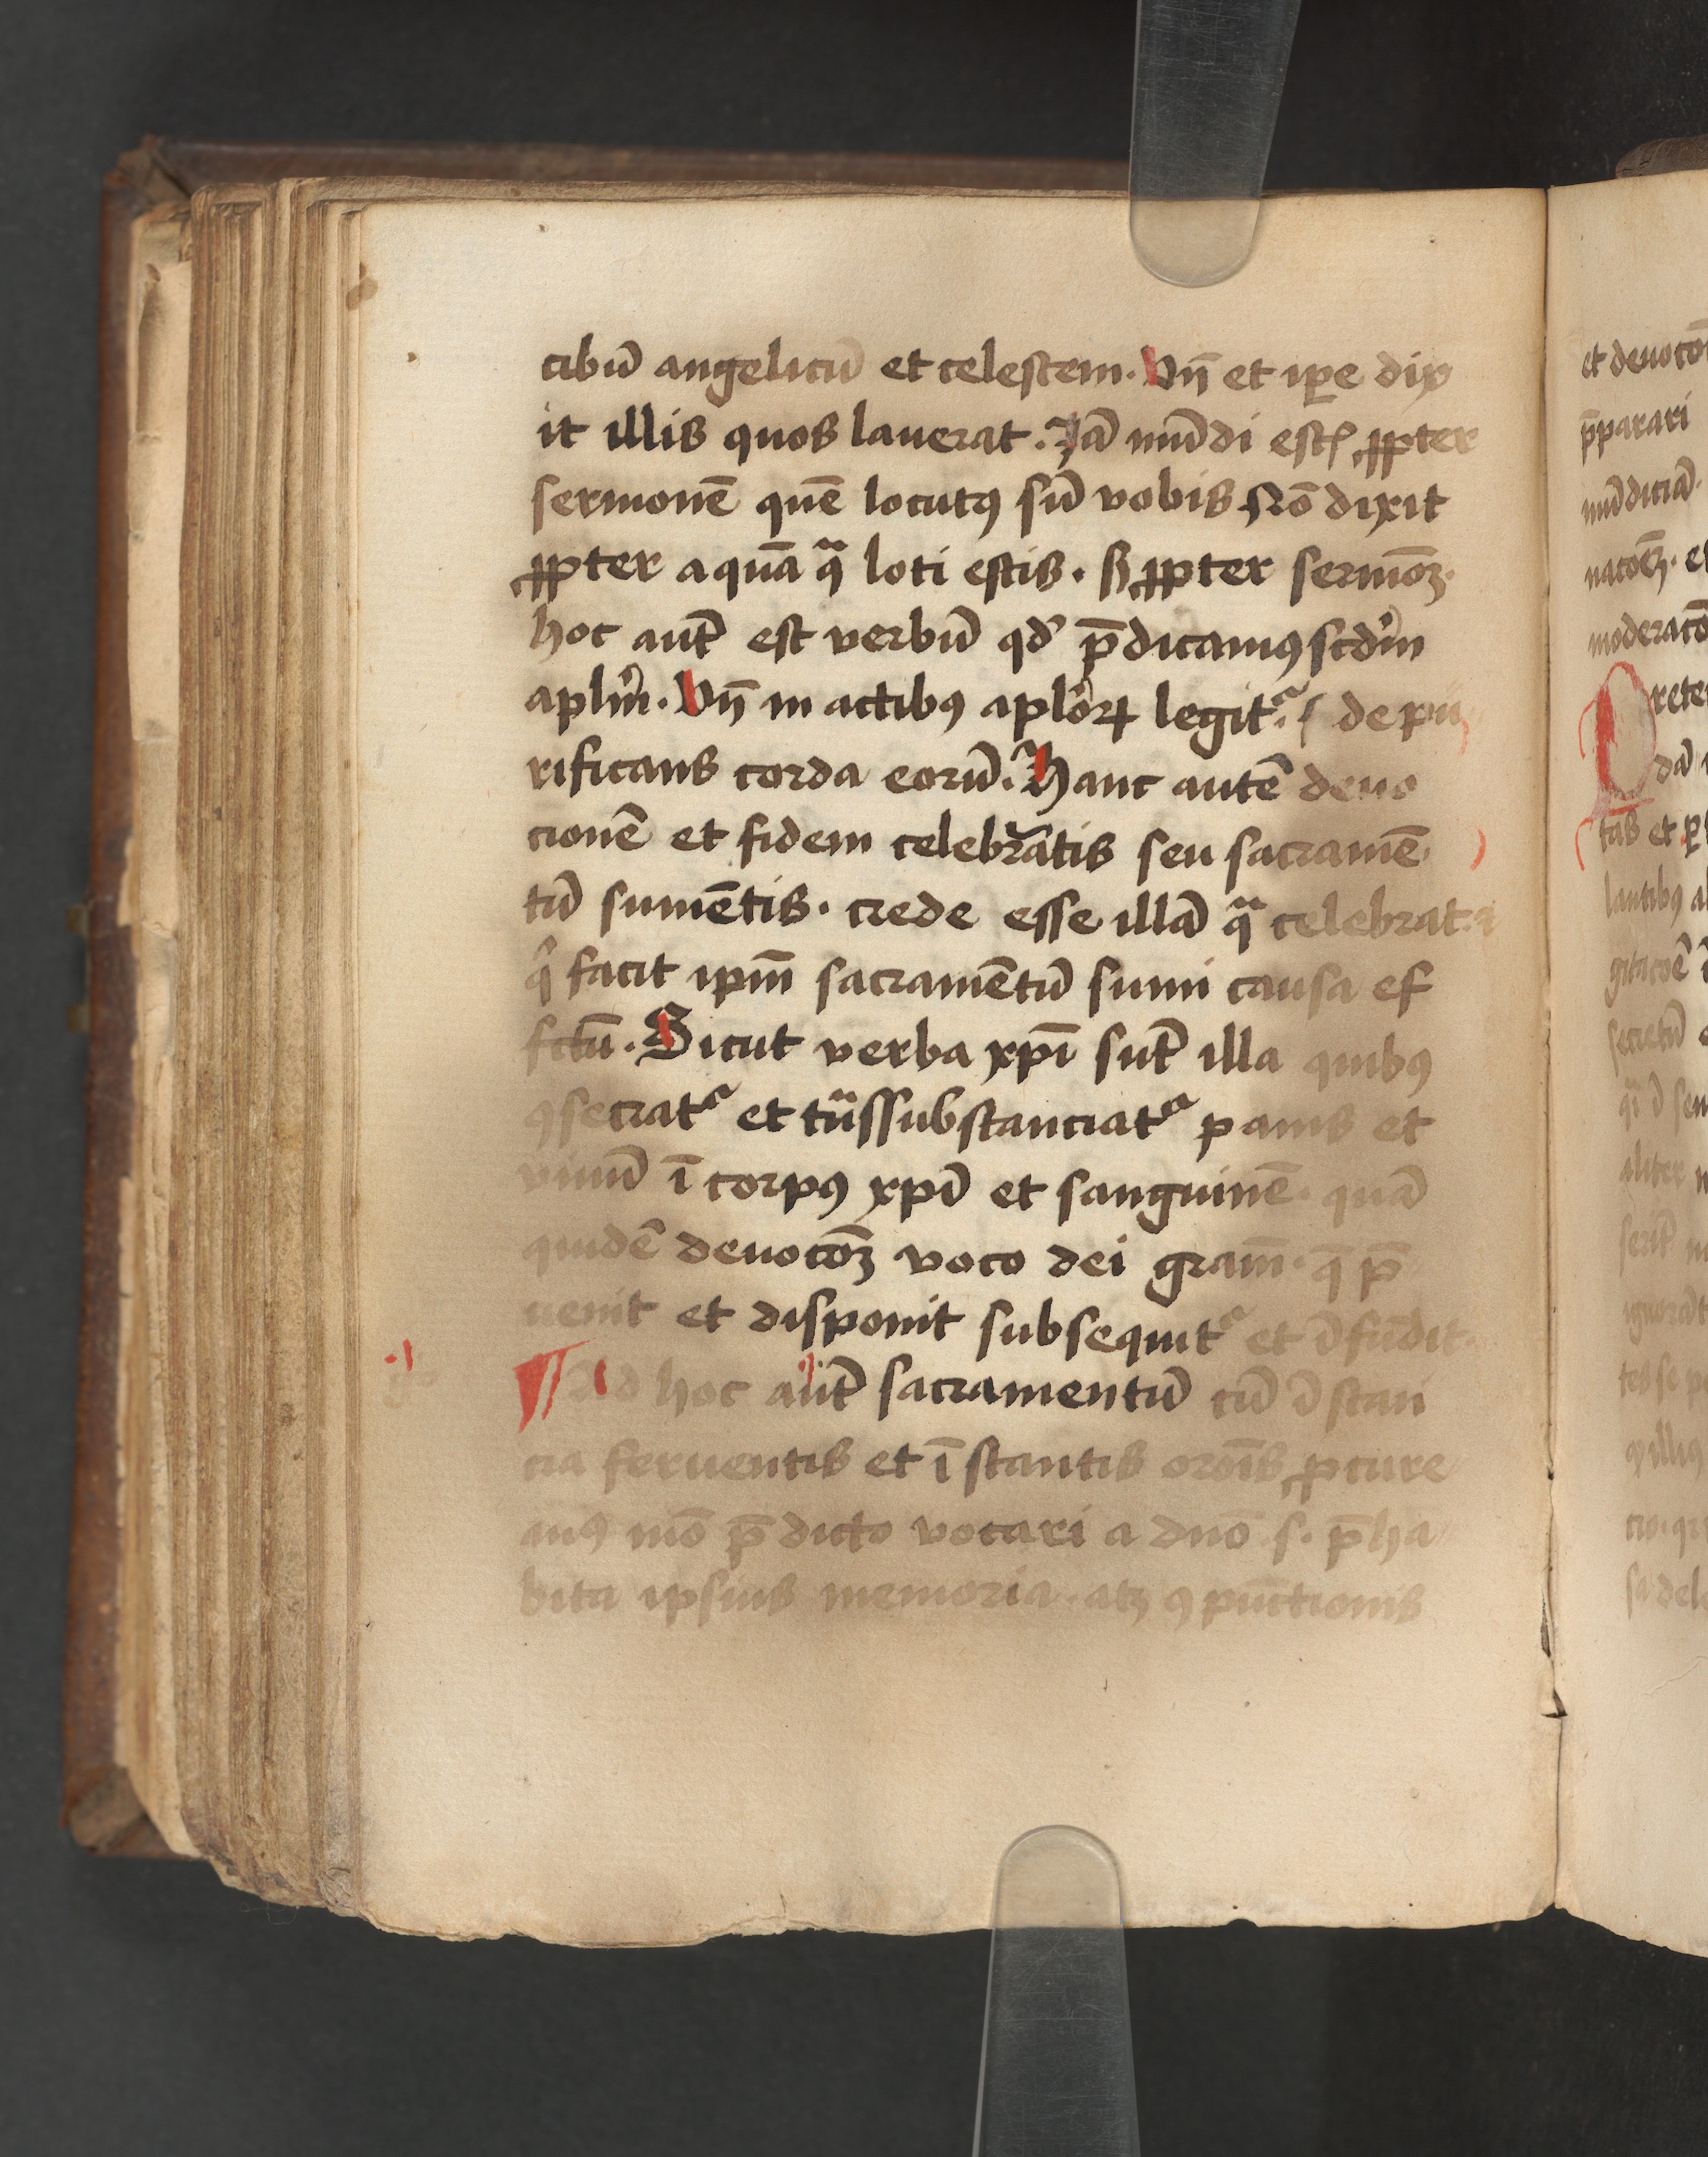 cibū angelicū et celestem. Vn̄ et ip̄e dix
it illis quos lauerat. Jā mūdi estꝭ ꝓpter
sermonē quē locutꝰ sū vobis Nō dixit
ꝓpter aquā qᵃ loti estis. sꝫ ꝓpter sermōꝫ.
hoc aut̄ est verbū qđ p̄dicamꝰ scd'm
apl'm. Vn̄ in actibꝰ aplo'ꝝ legit᷑. fide pu
rificans corda eorū. Hanc autē deuo
cionē et fidem celebrātis seu sacramē
tū sumētis. crede esse illā qᵃ celebrat᷑
qⁱ facit ipm̄ sacramētū sumi causa ef
fctū. Sicut verba xp̄i sūt illa quibꝰ
ꝯsecrat᷑ et tᵃssubstanciat᷑ panis et
vinū ī corpꝰ xp̄i et sanguinē. quā
quidē deuotōꝫ voco dei gram̄. q̄ p̄
uenit et disponit subsequit᷑ et īfūdit.
¶ Ad hoc aut̄ sacramentū cū īstan
cia feruentis et īstantis orōis ꝓcure
mꝰ mō p̄dicto vocari a dnō s. p̄ha
bita ipsius memoria. atꝫ ꝯpūctionis
et deuotō
p̄parari
mūdiciā.
natōeꝫ. et
moderatō
Prete
dā
tas et ꝑ
lantibꝰ
gitatōē
secretū
aliter